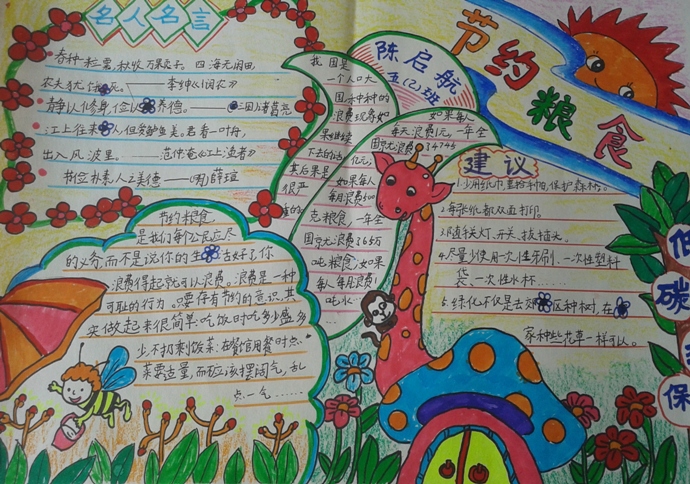 名人名言
春种一粒粟,秋收万颗子。四海无闲田,
农夫犹饿死。——李绅《悯农》
静以修身,俭以养德。——三国诸葛亮
江上往来人,但爱鲈鱼美。君看一叶舟,
出入风波里。——范仲淹《江上渔者》
节俭朴素,人之美德——(明)薛瑄
节约粮食
是我们每个公民应尽
的义务,而不是说你的生活好了,你
浪费得起就可以浪费。浪费是一种
可耻的行为。只要存有节约的意识,其
实做起来很简单:吃饭时吃多少盛多
少,不扔剩饭菜;在餐馆用餐时点
菜要适量,而不应该摆阔气,乱
点一气……
我国是
一个人口大
国
浪费现象如
果继续
下去的话,
其后果是
很严
重的
陈启航
五(2)班
如果每人
每天浪费1元,一年全
亿元;
如果每人
每月浪费500
克粮食,一年全
国就浪费
吨粮食;如果
每人每月浪费1
吨水
节约粮食
建议
1.少用纸巾,重拾手帕,保护森林。
2.每张纸都双面打印。
3.随手关灯、开关、拔插头。
4.尽量少使用一次性牙刷、一次性塑料
袋、一次性水杯……
5.绿化不仅是去郊区种树,在
家种些花草一样可以。
低碳
保